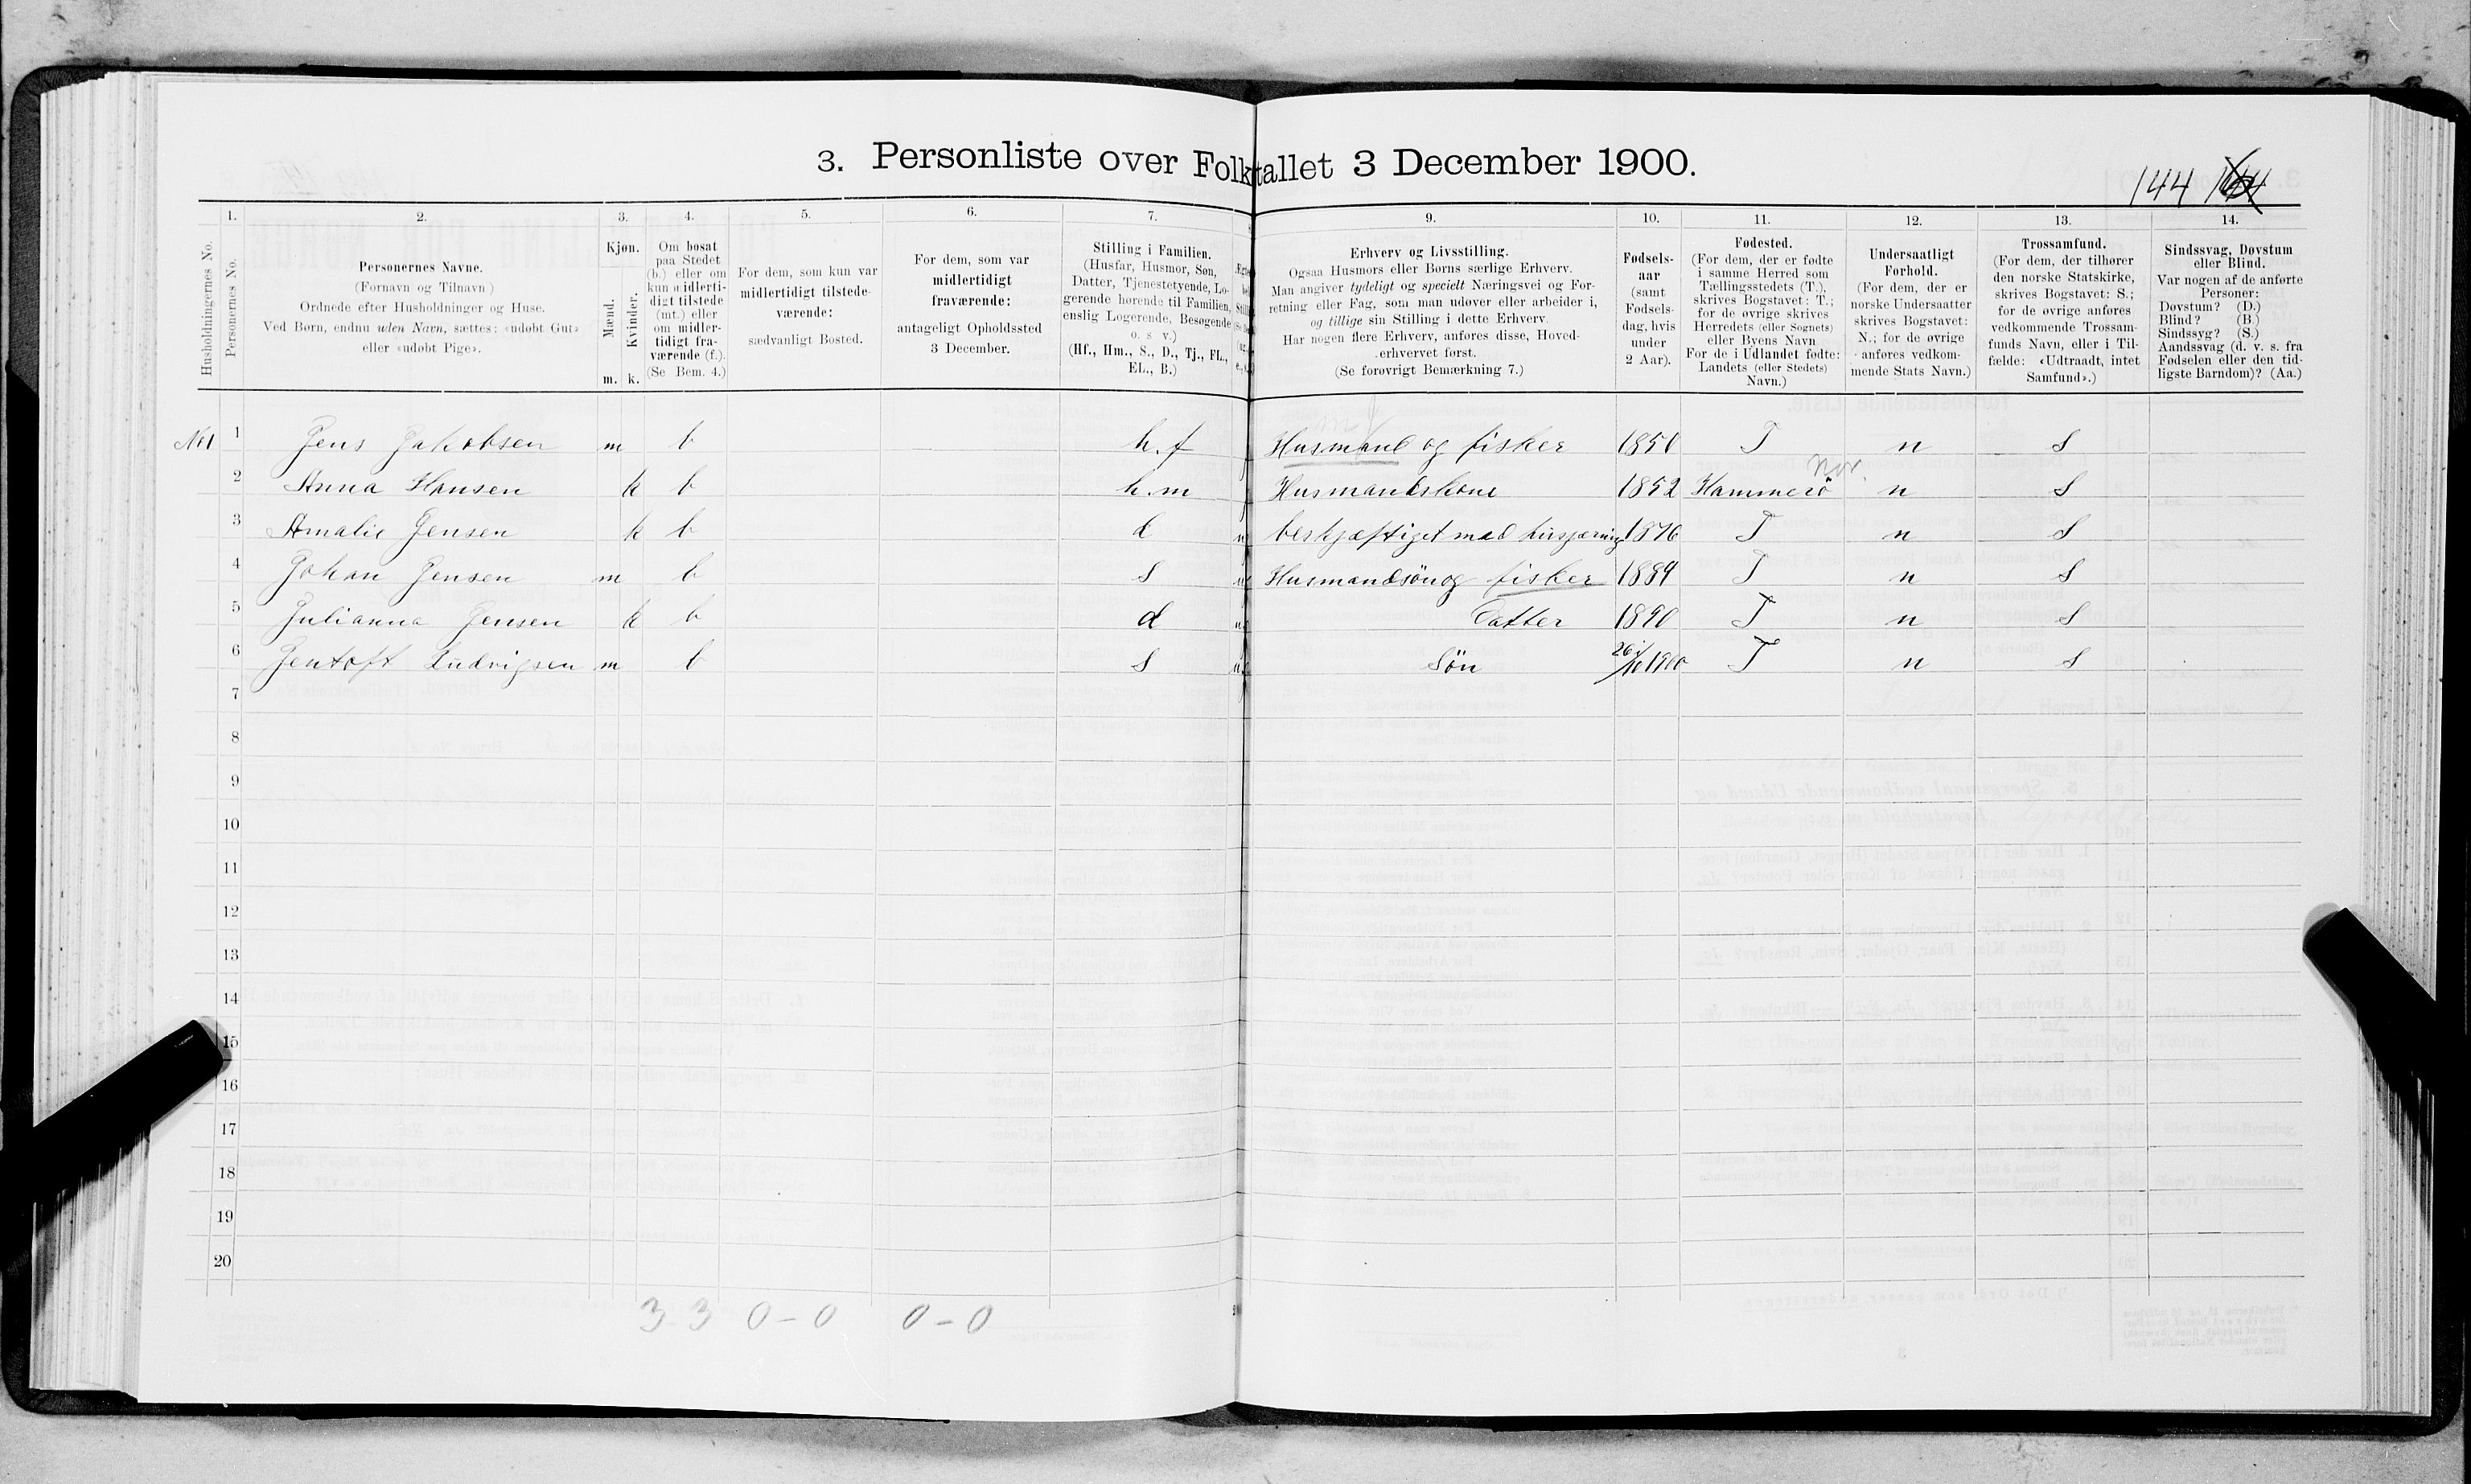 3. Personliste over Folketallet 3 December 1900.
144
1. 2. 3. 4. 5. 6. 7. 9. 10. 11. 12. 13. 14.
Husholdningernes No.
Personernes No.
Personernes Navne.
(Fornavn og Tilnavn)
Ordnede efter Husholdninger og Huse.
Ved Børn, endnu uden Navn, sættes: «udøbt Gut»
eller «udøbt Pige».
Kjøn.
Mænd.
Kvinder.
m. k.
Om bosat
paa Stedet
(b.) eller om
kun midlerti-
digt tilstede
(mt.) eller
om midler-
tidigt fra-
værende (f.).
(Se Bem. 4.)
For dem, som kun var
midlertidigt tilstede-
værende:
sædvanligt Bosted.
For dem, som var
midlertidigt
fraværende:
antageligt Opholdssted
3 December.
Stilling i Familien.
(Husfar, Husmor, Søn,
Datter, Tjenestetyende, Lo-
gerende hørende til Familien,
enslig Logerende, Besøgende
o. s v.)
(Hf., Hm., S., D., Tj., FL.,
EL., B.)
Erhverv og Livsstilling.
Ogsaa Husmors eller Børns særlige Erhverv.
Man angiver tydeligt og specielt Næringsvei og For-
retning eller Fag, som man udøver eller arbeider i,
og tillige sin Stilling i dette Erhverv.
Har nogen flere Erhverv, anføres disse, Hoved-
erhvervet først.
(Se forøvrigt Bemærkning 7.)
Fødsels-
aar
(samt
Fødsels-
dag, hvis
under
2 Aar).
Fødested.
(For dem, der er fødte
i samme Herred som
Tællingsstedets (T.),
skrives Bogstavet: T.;
for de øvrige skrives
Herredets (eller Sognets)
eller Byens Navn
For de i Udlandet fødte:
Landets (eller Stedets)
Navn.)
Undersaatligt
Forhold.
(For dem, der er
norske Undersaatter
skrives Bogstavet:
N.; for de øvrige
anføres vedkom-
mende Stats Navn.)
Trossamfund.
(For dem, der tilhører
den norske Statskirke,
skrives Bogstavet: S.;
for de øvrige anføres
vedkommende Trossam-
funds Navn, eller i Til-
fælde: «Udtraadt, intet
Samfund».)
Sindssvag, Døvstum
eller Blind.
Var nogen af de anførte
Personer:
Døvstum? (D.)
Blind? (B.)
Sindssyg? (S.)
Aandssvag (d. v. s. fra
Fødselen eller den tid-
ligste Barndom)? (Aa.)
No 1 1 Jens Jakobsen m b h.f Husmand og fisker 1850 T n S
2 Anna Hansen k b h.m Husmandskone 1852 Hammerö Nor. n S
3 Amalie Jensen k b d beskjæftiget med husgjerning 1876 T n S
4 Johan Jensen m b S Husmandsön og fisker 1884 T n S
5 Julianna Jensen k b d Datter 1890 T n S
6 Jentoft Ludvigsen m b S Sön 26/10 1900 T n S
7
8
9
10
11
12
13
14
15
16
17
18
19
20
3 3 0-0 0-0